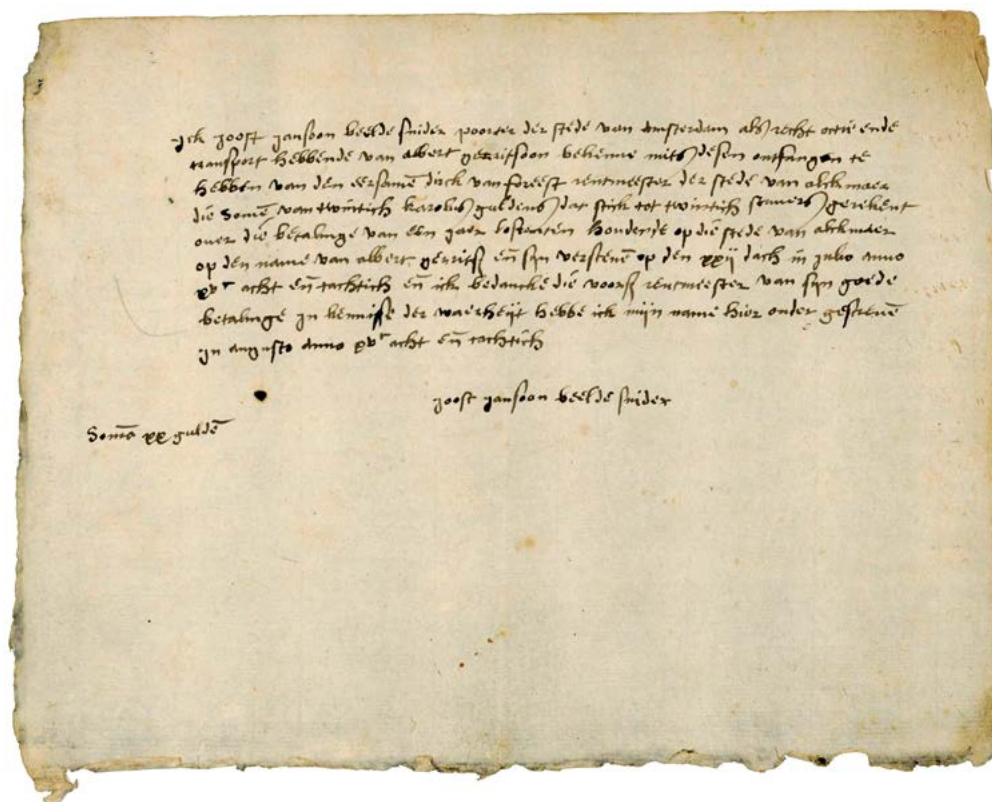 Ick Joost Jansoon beelde snider poorter der stede van Amsterdam als recht actie ende
transport hebbende van albert gerritsoon bekenne mits desen ontfangen te
hebben van den eersamē dirck van foreest rentmeester der stede van alckmaer
die somē van twintich karolus guldens dat stick tot twintich stuvers gerekent
over die betalinge van een jaer losrenten houdende op die stede van alckmaer
op den name van albert gerritsz eñ sijn verscenē op den xxij dach in julio anno
xvᶜ acht eñ tachtich eñ ick bedancke die voorsz rentmeester van sijn goede
betalinge In kennisse der waerheijt hebbe ick mijn name hier onder gescrevē
In augusto anno xvᶜ acht eñ tachtich
Joost Jansoon beelde snider
Somā xx guldē